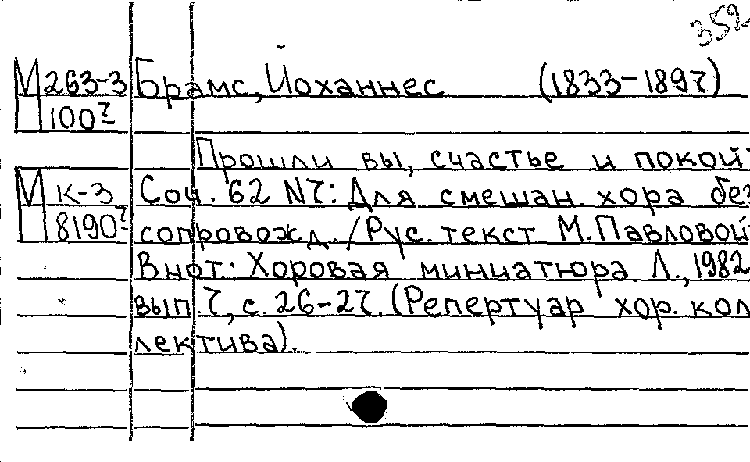 352
М 263-3 Брамс, Йоханнес (1833-1897)
100²
Прошли вы, счастье и покой:
М К-3 Соч. 62 N7: Для смешан. хора без
8190² сопровожд. /Рус. текст М. Павловой
В нот: Хоровая миниатюра Л., 1982
вып 7, с. 26-27. (Репертуар хор. кол
лектива).